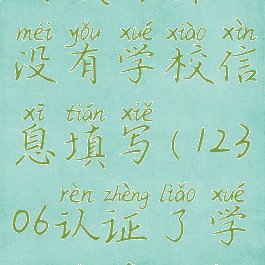 méi yǒu xué xiào xìn
没有学校信
xī tián xiě
息填写(123
rèn zhèng liǎo xué
06认证了学